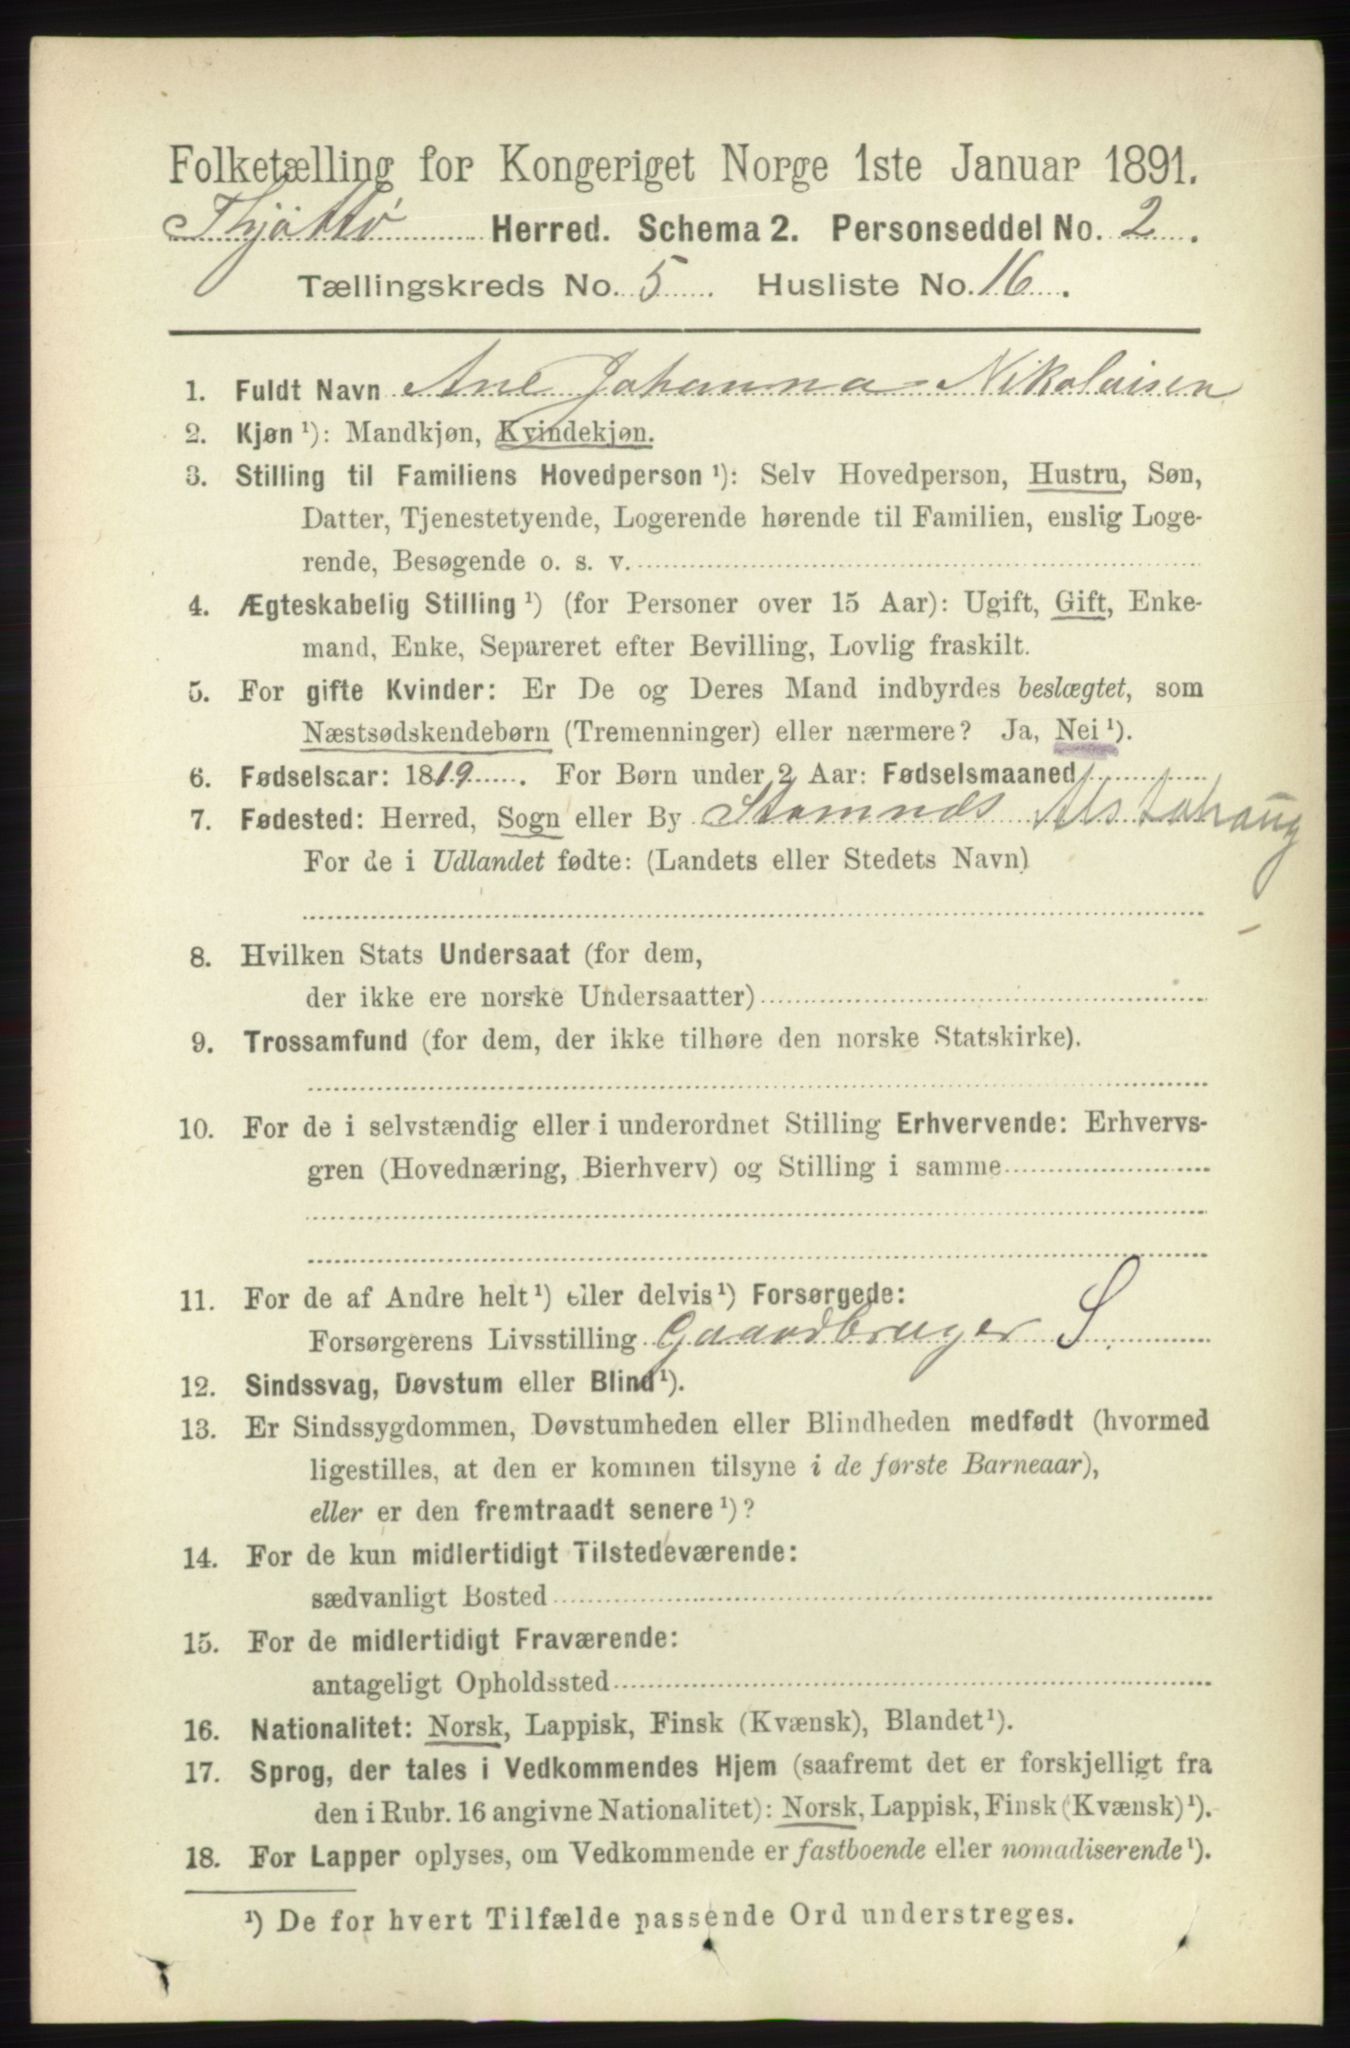 Folketælling for Kongeriget Norge 1ste Januar 1891.
Thjøttø Herred. Schema 2. Personseddel No. 2.
Tællingskreds No. 5. Husliste No. 16.
1. Fuldt Navn Ane Johanna Nikolaisen
2. Kjøn ¹): Mandkjøn, Kvindekjøn.
3. Stilling til Familiens Hovedperson ¹): Selv Hovedperson, Hustru, Søn,
Datter, Tjenestetyende, Logerende hørende til Familien, enslig Loge-
rende, Besøgende o. s. v.
4. Ægteskabelig Stilling ¹) (for Personer over 15 Aar): Ugift, Gift, Enke-
mand, Enke, Separeret efter Bevilling, Lovlig fraskilt.
5. For gifte Kvinder: Er De og Deres Mand indbyrdes beslægtet, som
Næstsødskendebørn (Tremenninger) eller nærmere? Ja, Nei ¹).
6. Fødselsaar: 1819. For Børn under 2 Aar: Fødselsmaaned
7. Fødested: Herred, Sogn eller By Stamnæs Alstahaug
For de i Udlandet fødte: (Landets eller Stedets Navn)
8. Hvilken Stats Undersaat (for dem,
der ikke ere norske Undersaatter)
9. Trossamfund (for dem, der ikke tilhøre den norske Statskirke).
10. For de i selvstændig eller i underordnet Stilling Erhvervende: Erhvervs-
gren (Hovednæring, Bierhverv) og Stilling i samme
11. For de af Andre helt ¹) eller delvis ¹) Forsørgede:
Forsørgerens Livsstilling Gaardbruger S.
12. Sindssvag, Døvstum eller Blind ¹).
13. Er Sindssygdommen, Døvstumheden eller Blindheden medfødt (hvormed
ligestilles, at den er kommen tilsyne i de første Barneaar),
eller er den fremtraadt senere ¹)?
14. For de kun midlertidigt Tilstedeværende:
sædvanligt Bosted
15. For de midlertidigt Fraværende:
antageligt Opholdssted
16. Nationalitet: Norsk, Lappisk, Finsk (Kvænsk), Blandet ¹).
17. Sprog, der tales i Vedkommendes Hjem (saafremt det er forskjelligt fra
den i Rubr. 16 angivne Nationalitet): Norsk, Lappisk, Finsk (Kvænsk) ¹).
18. For Lapper oplyses, om Vedkommende er fastboende eller nomadiserende ¹).
¹) De for hvert Tilfælde passende Ord understreges.